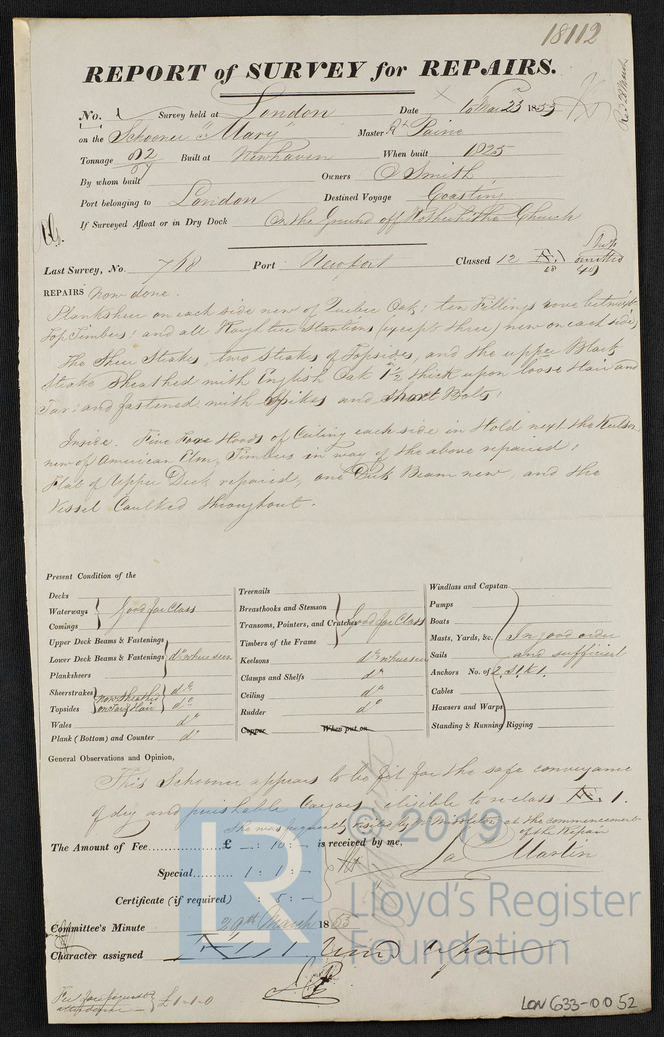 18112
REPORT of SURVEY for REPAIRS.
No. 1 Survey held at London Date to Mar 23 1853
on the Schooner "Mary" Master Rt Paine
Tonnage 62/64 Built at Newhaven When built 1825
By whom built Owners O Smith
Port belonging to London Destined Voyage Coasting
If Surveyed Afloat or in Dry Dock On the Ground off Rotherhithe Church
Last Survey, No. 718 Port Newport Classed 12
REPAIRS Now done.
Planksheer on each side new of Quebec Oak; ten Fillings between
Top Timbers; and all Roughtree Stantions (except three) new on each side;
The Sheer Strakes, two Strakes of Topsides, and the upper Black
Strake sheathed with English Oak 1½ thick upon loose Hair and
Tar; and fastened with Spikes and short Bolts;
Inside. Five Fore Hoods of Ceiling each side in Hold next the Keelson
new of American Elm, Timbers in way of the above repaired;
Flat of Upper Deck repaired, one Deck Beam new, and the
Vessel Caulked throughout.
Present Condition of the
Decks
Waterways Good for Class
Comings
Upper Deck Beams & Fastenings
Lower Deck Beams & Fastenings do where seen
Planksheers
Sheerstrakes now Sheathed do
Topsides on Tar & Hair do
Wales do
Plank (Bottom) and Counter do
Treenails
Breasthooks and Stemson
Transoms, Pointers, and Crutches Good for Class
Timbers of the Frame
Keelsons do where seen
Clamps and Shelfs do
Ceiling do
Rudder do
Copper When put on
Windlass and Capstan
Pumps
Boats
Masts, Yards, &c. In good order
Sails and sufficient
Anchors No. of 2, St. K 1.
Cables
Hawsers and Warps
Standing & Running Rigging
General Observations and Opinion,
This Schooner appears to be fit for the safe conveyance
of dry and perishable Cargoes, eligible to reclass Æ. 1.
She was frequently visited by Mr Middleton at the commencement
of the Repair
The Amount of Fee £ - : 10 : - is received by me,
Special 1 : 1 : - Jas Martin
Certificate (if required) : 5 : -
Committee's Minute 29th March 1853
Character assigned Æ 1
£1-1-0
LON 633-0052
© 2019
Lloyd's Register
Foundation
LR